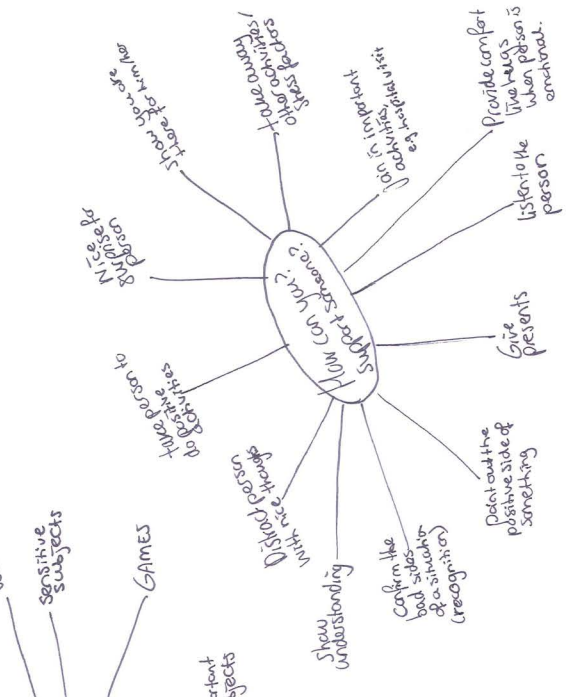 How can you?
support someone?
Show you are
there for him/her
take away
other activities/
stress factors
Join in important
activities,
e.g. hospital visit
Provide comfort
like hugs
when person is
emotional.
listen to the
person
Give
presents
point out the
positive side of
something
Confirm the
bad sides
of a situation
(recognition)
Show
understanding
Distract person
with nice things
take person to
do positive
activities
Nice
surprise for
person
sensitive
subjects
GAMES